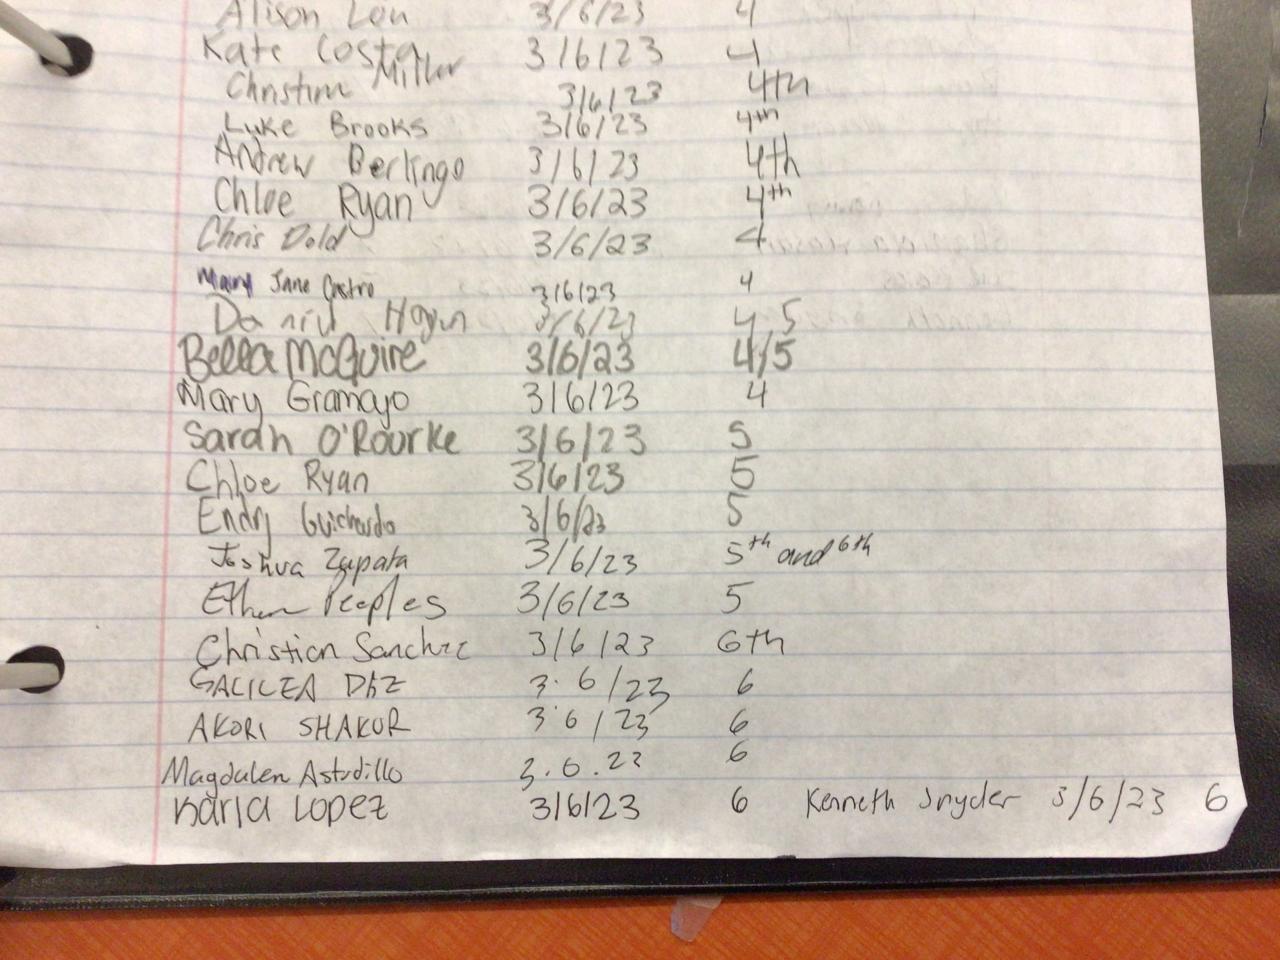 Alison Lou 3/6/23 4
Kate Costa 3/6/23 4
Miller
Christine 3/6/23 4th
Luke Brooks 3/6/23 4th
Andrew Berlingo 3/6/23 4th
Chloe Ryan 3/6/23 4th
Chris Dold 3/6/23 4
Mary Jane Castro 3/6/23 4
Daniel Hogan 3/6/23 4 5
Bella McGuire 3/6/23 4/5
Mary Gramajo 3/6/23 4
Sarah O'Rourke 3/6/23 5
Chloe Ryan 3/6/23 5
Endry Guichardo 3/6/23 5
Joshua Zapata 3/6/23 5th and 6th
Ethan Peeples 3/6/23 5
Christian Sanchez 3/6/23 6th
GALILEA DÍAZ 3.6/23 6
AKORI SHAKUR 3.6/23 6
Magdalen Astudillo 3.6.23 6
Karla Lopez 3/6/23 6 Kenneth Snyder 3/6/23 6